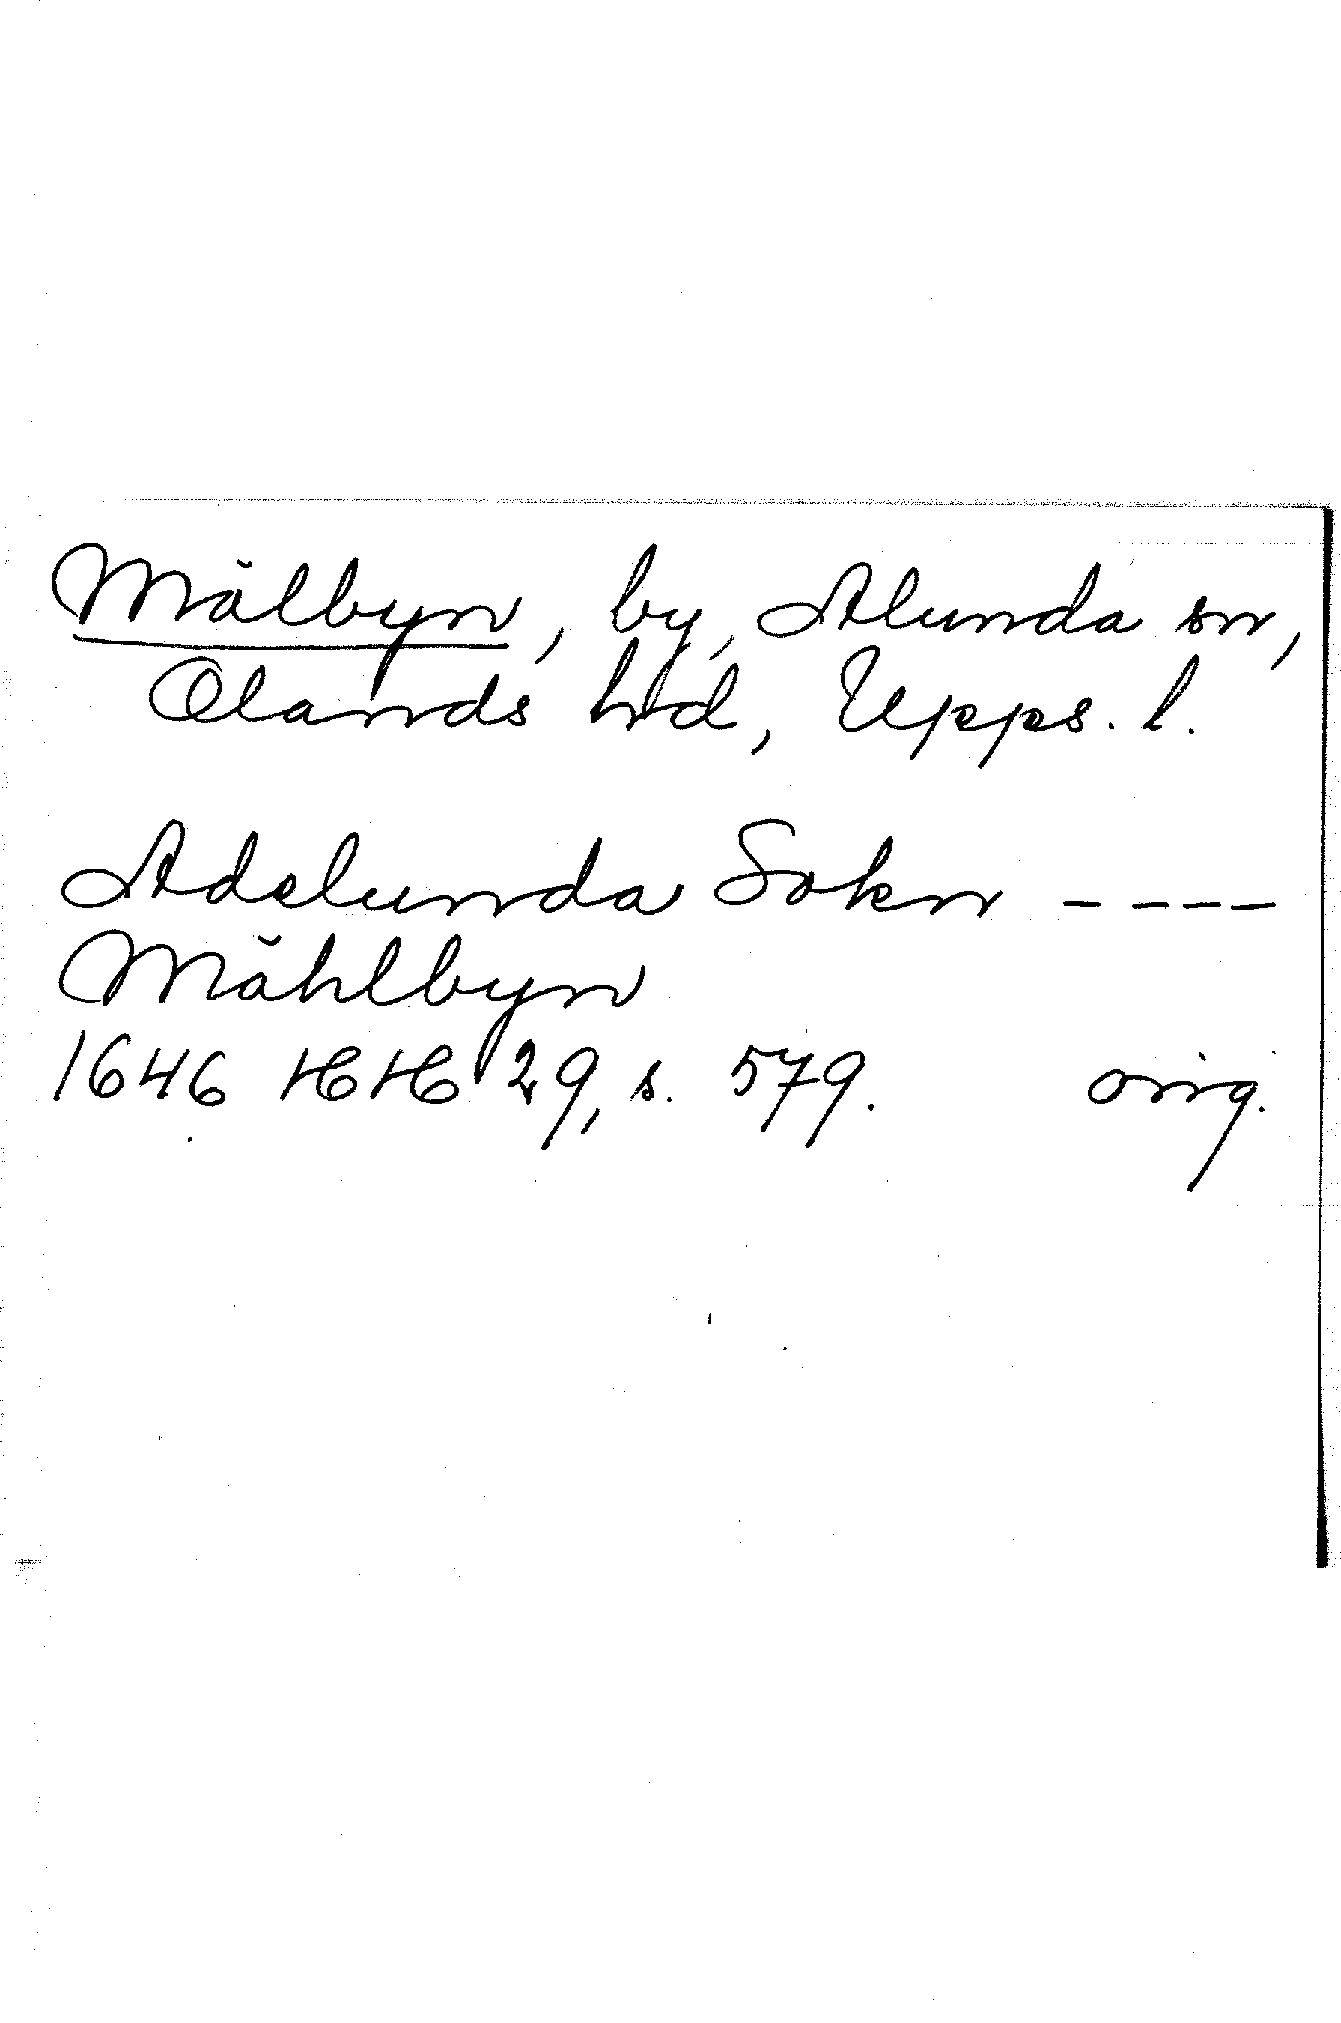 Målbyn, by, Alunda sn,
Olands hd, Upps. l.
Adelunda Sokn ----
Måhlbyn
1646 HH 29, s. 579. orig.